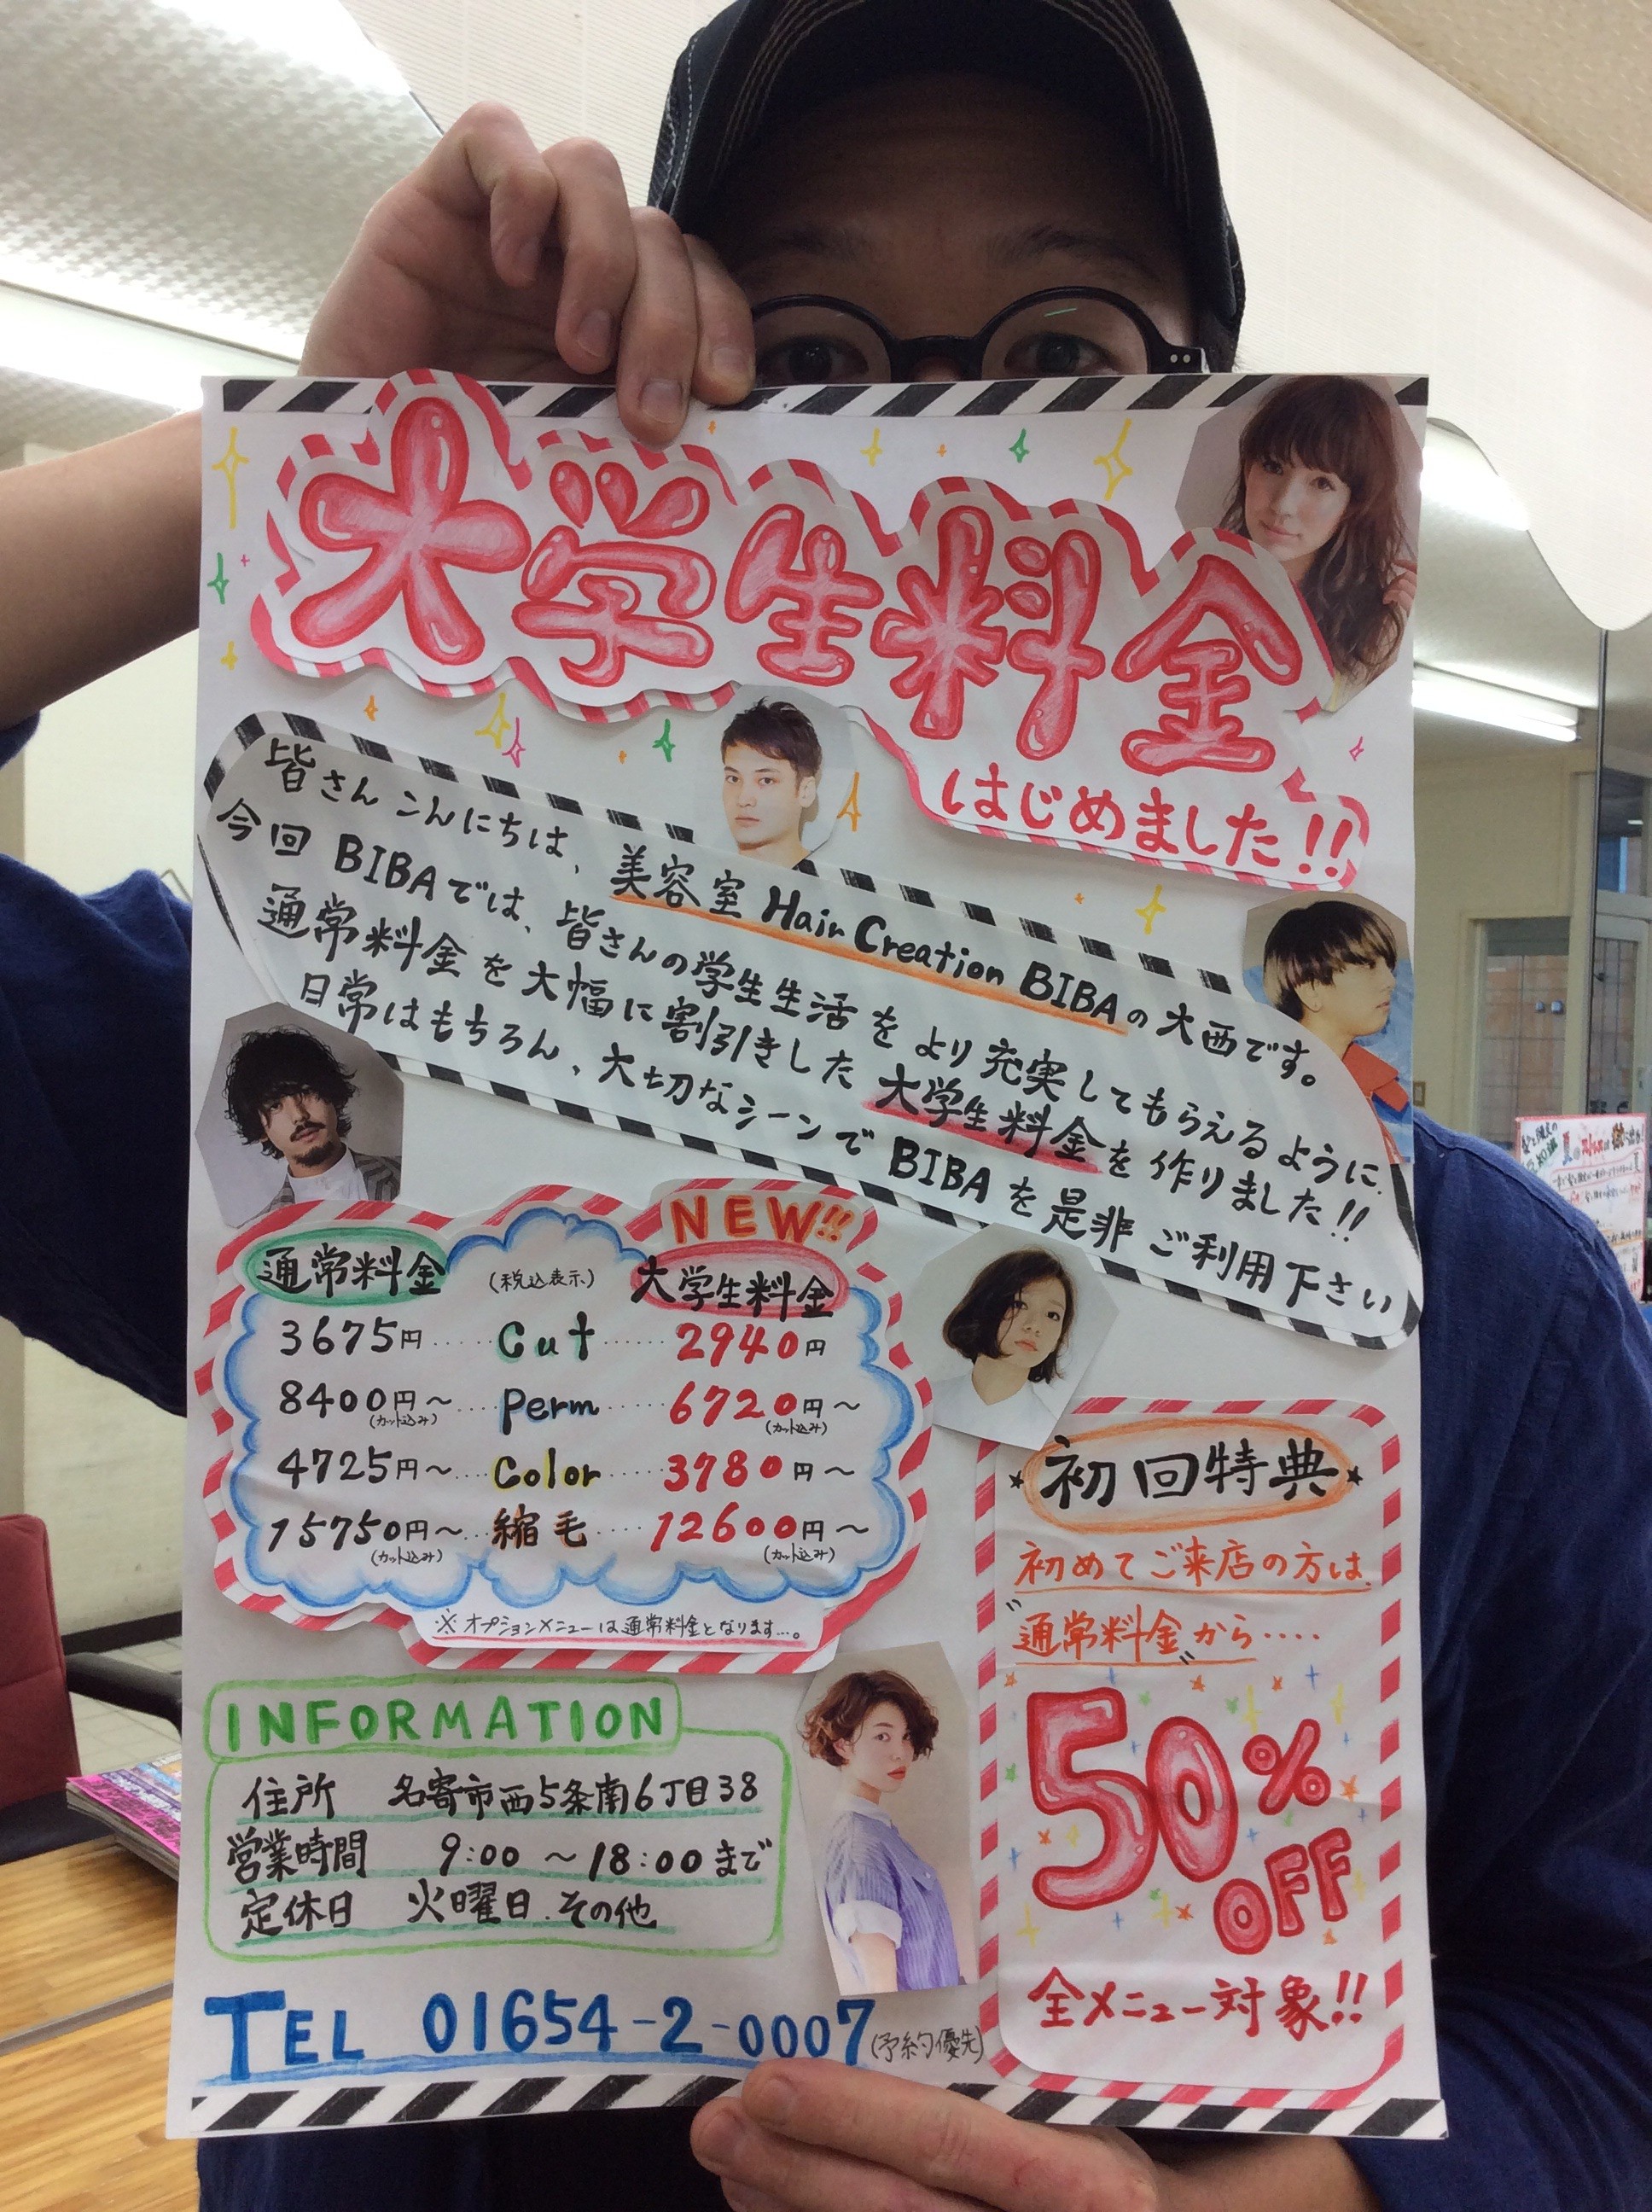 大学生料金
はじめました!!
皆さんこんにちは、美容室 Hair Creation BIBAの大西です。
今回BIBAでは、皆さんの学生生活をより充実してもらえるように、
通常料金を大幅に割引きした大学生料金を作りました!!
日常はもちろん、大切なシーンでBIBAを是非ご利用下さい
NEW!!
通常料金 (税込表示) 大学生料金
3675円 ..... Cut ..... 2940円
8400円～ .... Perm .... 6720円～
(カット込み) (カット込み)
4725円～ ... Color ..... 3780円～
15750円～ ... 縮毛 .... 12600円～
(カット込み) (カット込み)
※オプションメニューは通常料金となります...。
初回特典
初めてご来店の方は、
"通常料金"から....
50%
OFF
全メニュー対象!!
INFORMATION
住所 名寄市西5条南6丁目38
営業時間 9:00 ～18:00まで
定休日 火曜日.その他
TEL 01654-2-0007(予約優先)